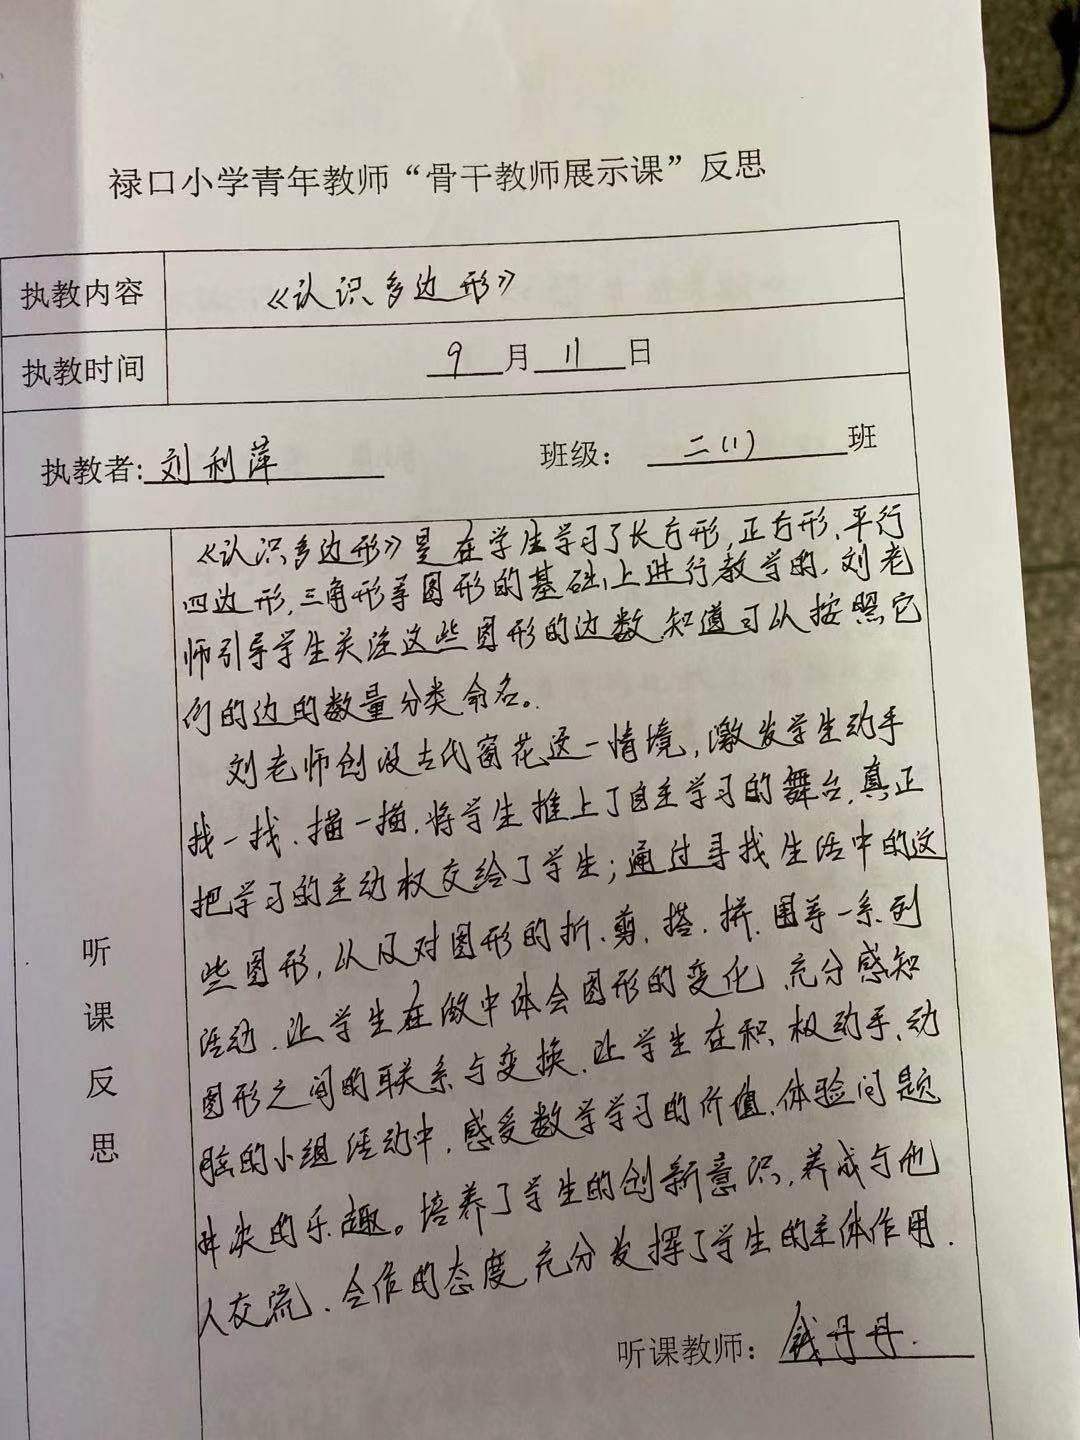 禄口小学青年教师“骨干教师展示课”反思
执教内容 《认识多边形》
执教时间 9月11日
执教者:刘利萍 班级: 二(1)班
听课反思
《认识多边形》是在学生学习了长方形,正方形、平行
四边形,三角形等图形的基础上进行教学的,刘老
师引导学生关注这些图形的边数,知道可以按照它
们的边的数量分类命名。
刘老师创设古代窗花这一情境,激发学生动手
找一找、描一描,将学生推上了自主学习的舞台,真正
把学习的主动权交给了学生;通过寻找生活中的这
些图形,以及对图形的折、剪、搭、拼、围等一系列
活动,让学生在做中体会图形的变化,充分感知
图形之间的联系与变换,让学生在积极动手、动
脑的小组活动中,感受数学学习的价值,体验问题
解决的乐趣。培养了学生的创新意识,养成与他
人交流、合作的态度,充分发挥了学生的主体作用.
听课教师: 钱丹丹.